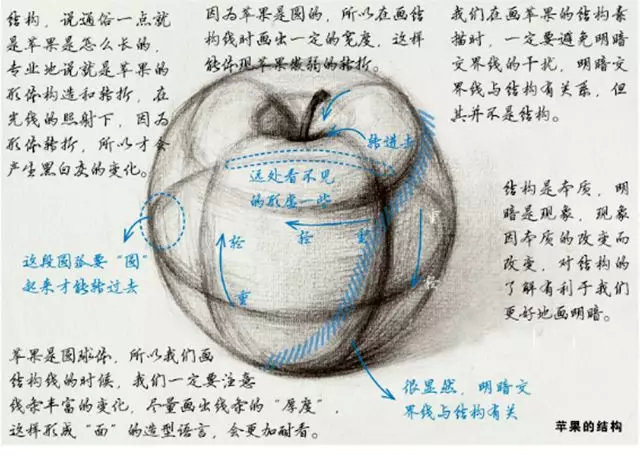 结构，说通俗一点就
是苹果是怎么长的，
专业地说就是苹果的
形体构造和转折，在
光线的照射下，因为
形体转折，所以才会
产生黑白灰的变化。
因为苹果是圆的，所以在画结
构线时画出一定的宽度，这样
能体现苹果微弱的转折。
我们在画苹果的结构素
描时，一定要避免明暗
交界线的干扰，明暗交
界线与结构有关系，但
其并不是结构。
转进去
远处看不见
的形虚一些
结构是本质，明
暗是现象，现象
因本质的改变而
改变，对结构的
了解有利于我们
更好地画明暗。
轻
轻
重
重
重
轻
这段圆弧要“圆”
起来才能转过去
苹果是圆球体，所以我们画
结构线的时候，我们一定要注意
线条丰富的变化，尽量画出线条的“厚度”，
这样形成“面”的造型语言，会更加耐看。
很显然，明暗交
界线与结构有关
苹果的结构